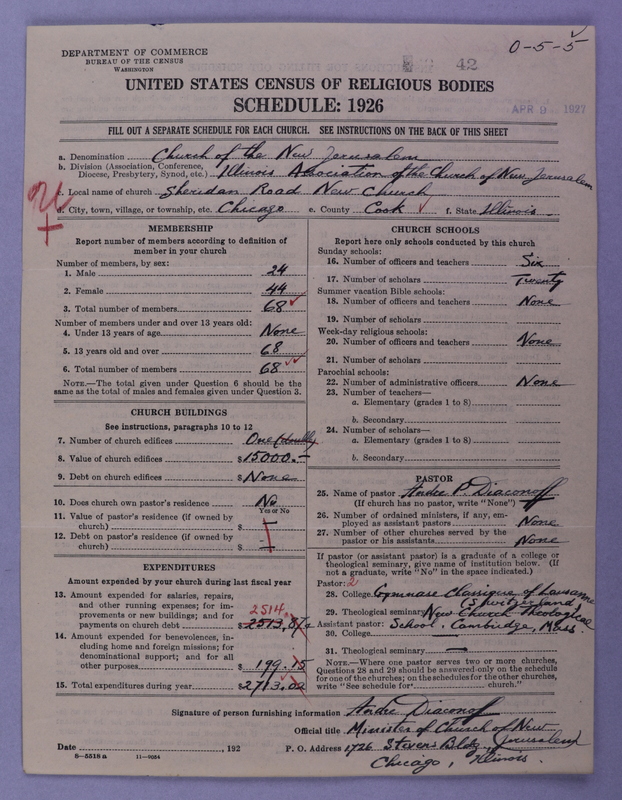 DEPARTMENT OF COMMERCE
BUREAU OF THE CENSUS
WASHINGTON
42
0-5-5
UNITED STATES CENSUS OF RELIGIOUS BODIES
SCHEDULE: 1926
APR 9 1927
FILL OUT A SEPARATE SCHEDULE FOR EACH CHURCH. SEE INSTRUCTIONS ON THE BACK OF THIS SHEET
a. Denomination Church of the New Jerusalem
b. Division (Association, Conference, Diocese, Presbytery, Synod, etc.) Illinois Association of the Church of New Jerusalem
c. Local name of church Sheridan Road New Church
d. City, town, village, or township, etc. Chicago e. County Cook f. State Illinois
MEMBERSHIP
Report number of members according to definition of
member in your church
Number of members, by sex:
1. Male 24
2. Female 44
3. Total number of members 68
Number of members under and over 13 years old:
4. Under 13 years of age None
5. 13 years old and over 68
6. Total number of members 68
NOTE.—The total given under Question 6 should be the
same as the total of males and females given under Question 3.
CHURCH BUILDINGS
See instructions, paragraphs 10 to 12
7. Number of church edifices One
8. Value of church edifices $15000.—
9. Debt on church edifices $None
10. Does church own pastor's residence No
Yes or No
11. Value of pastor's residence (if owned by
church) $
12. Debt on pastor's residence (if owned by
church) $
EXPENDITURES
Amount expended by your church during last fiscal year
13. Amount expended for salaries, repairs,
and other running expenses; for im-
provements or new buildings; and for 2514
payments on church debt $2513.87
14. Amount expended for benevolences, in-
cluding home and foreign missions; for
denominational support; and for all
other purposes 199.15
15. Total expenditures during year $2713.02
CHURCH SCHOOLS
Report here only schools conducted by this church
Sunday schools:
16. Number of officers and teachers Six
17. Number of scholars Twenty
Summer vacation Bible schools:
18. Number of officers and teachers None
19. Number of scholars
Week-day religious schools:
20. Number of officers and teachers None
21. Number of scholars
Parochial schools:
22. Number of administrative officers None
23. Number of teachers—
a. Elementary (grades 1 to 8)
b. Secondary
24. Number of scholars—
a. Elementary (grades 1 to 8)
b. Secondary
PASTOR
25. Name of pastor Andre P. Diaconoff
(If church has no pastor, write "None")
26. Number of ordained ministers, if any, em-
ployed as assistant pastors None
27. Number of other churches served by the
pastor or his assistants None
If pastor (or assistant pastor) is a graduate of a college or
theological seminary, give name of institution below. (If
not a graduate, write "No" in the space indicated.)
Pastor: 2
28. College Gymnase Classique of Lausanne
(Switzerland)
29. Theological seminary New Church Theological
Assistant pastor: School, Cambridge, Mass.
30. College —
31. Theological seminary —
NOTE.—Where one pastor serves two or more churches,
Questions 28 and 29 should be answered only on the schedule
for one of the churches; on the schedules for the other churches,
write "See schedule for church."
Signature of person furnishing information Andre Diaconoff
Official title Minister of Church of New
Jerusalem
Date , 192
P. O. Address 1726 Stevens Bldg.,
Chicago, Illinois.
8—5518 a 11—9054